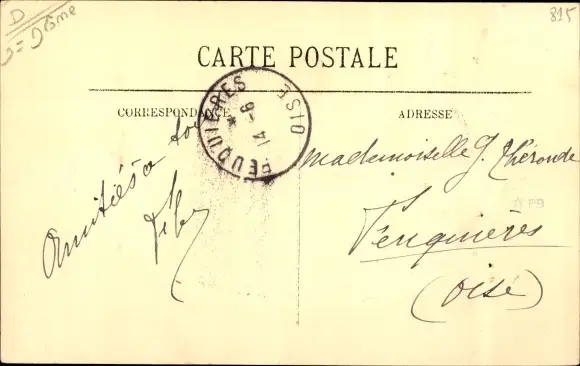 D
= Drôme
815
CARTE POSTALE
CORRESPONDANCE
ADRESSE
FEUQUIERES
OISE
6
14
*
Amitiés à tous
Mademoiselle J. Théronde
Feuquières
(Oise)